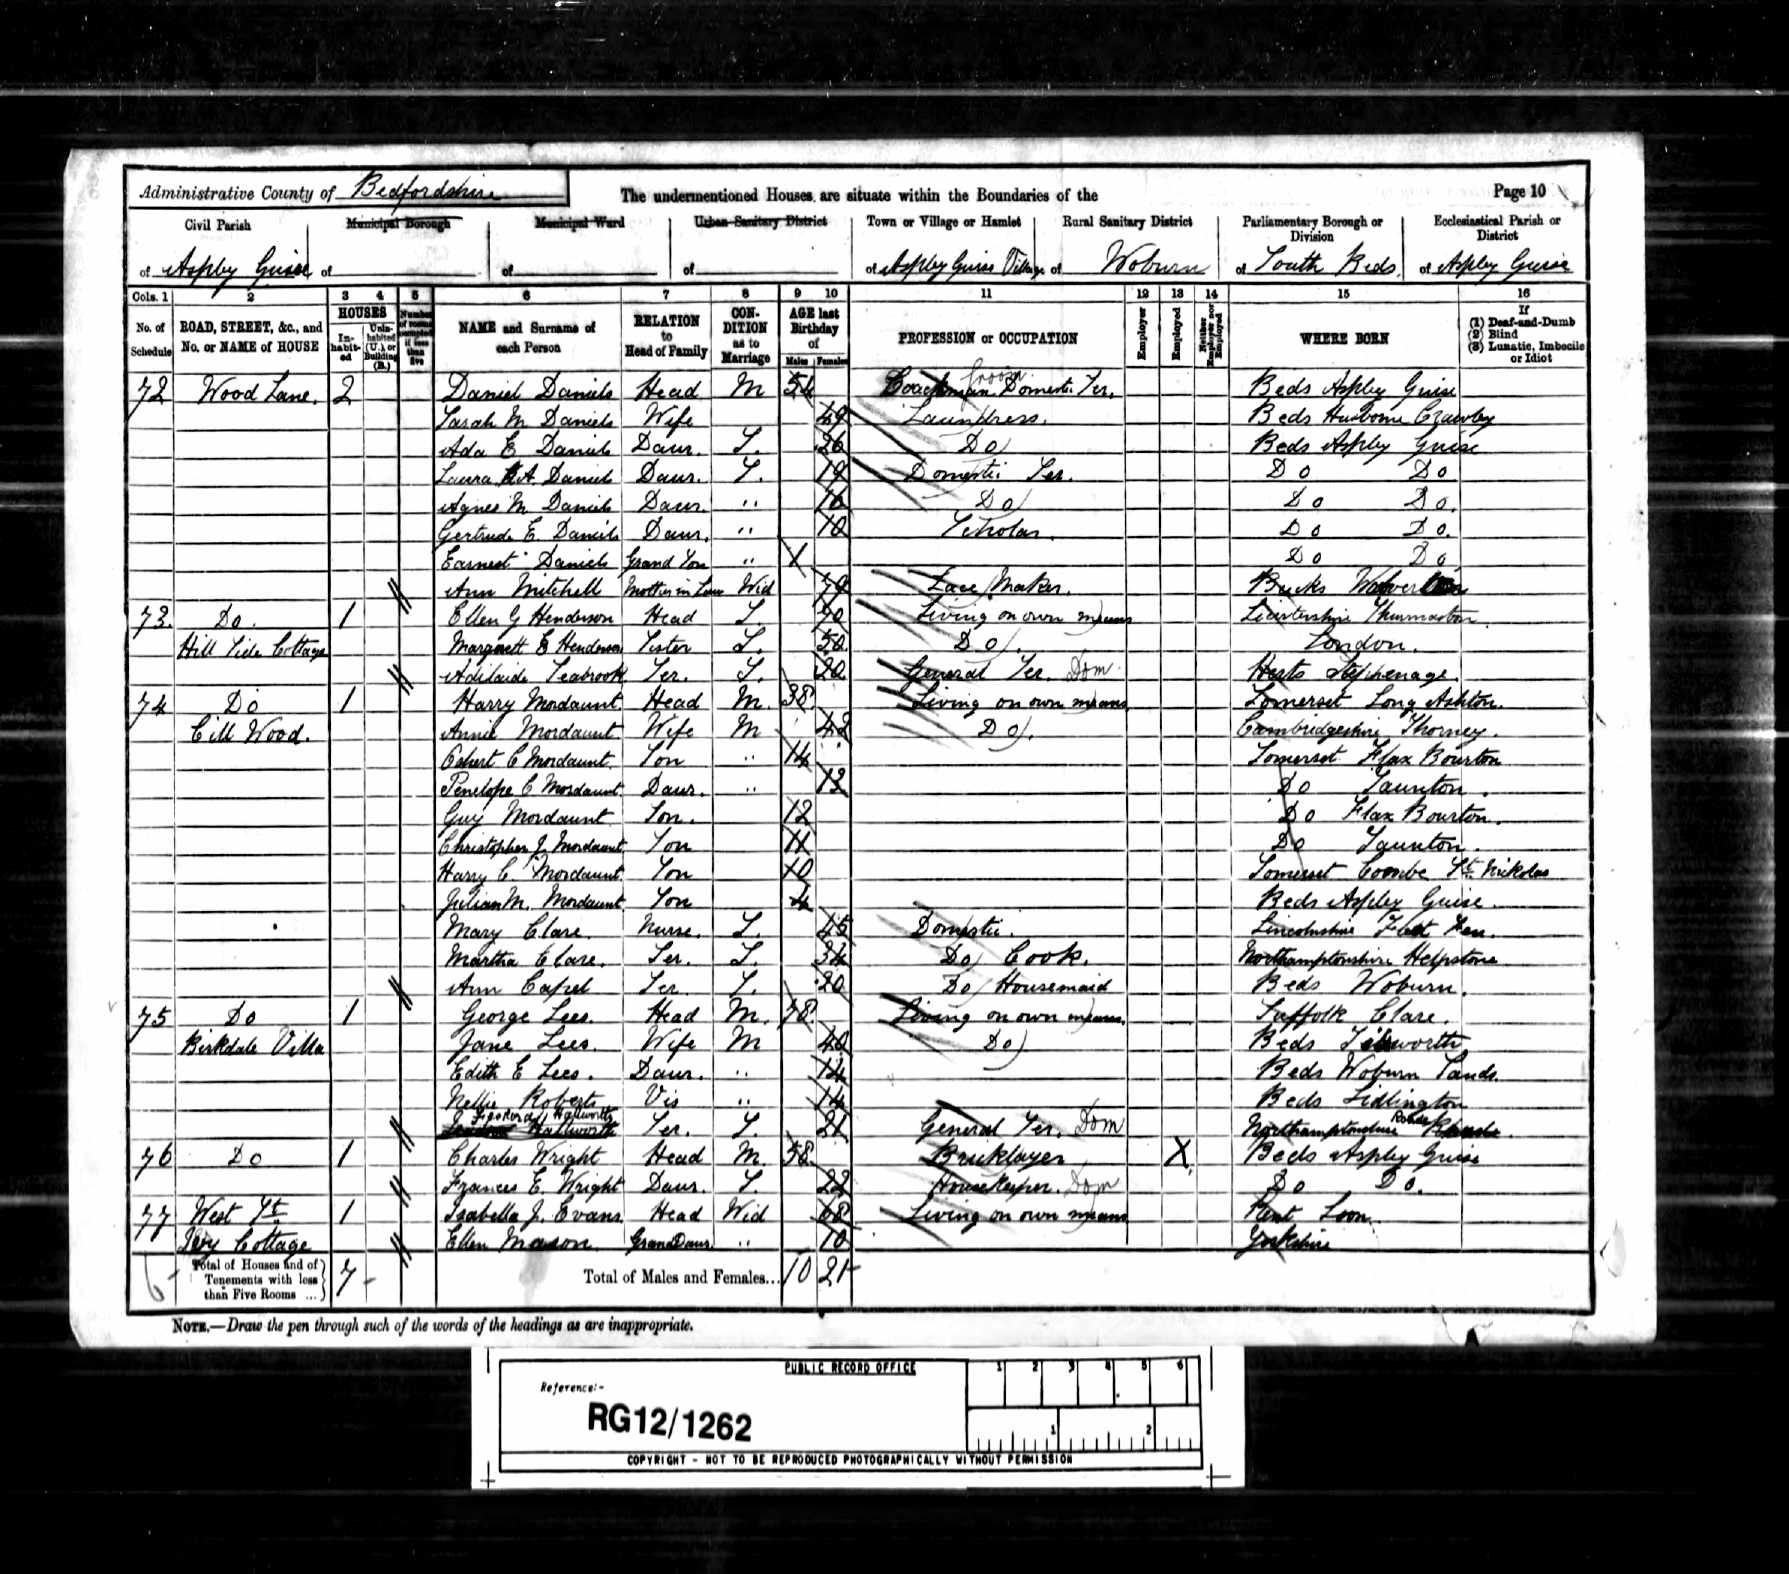 Administrative County of Bedfordshire The undermentioned Houses are situate within the Boundaries of the Page 10
Civil Parish Municipal Borough Municipal Ward Urban Sanitary District Town or Village or Hamlet Rural Sanitary District Parliamentary Borough or Division Ecclesiastical Parish or District
of Aspley Guise of of of of Aspley Guise Village of Woburn of South Beds. of Aspley Guise
Cols. 1 2 3 4 5 6 7 8 9 10 11 12 13 14 15 16
No. of Schedule ROAD, STREET, &c., and No. or NAME of HOUSE HOUSES Inhabited Uninhabited (U.), or Building (B.) Number of rooms occupied if less than five NAME and Surname of each Person RELATION to Head of Family CONDITION as to Marriage AGE last Birthday of Males Females PROFESSION or OCCUPATION Employer Employed Neither Employer nor Employed WHERE BORN If (1) Deaf-and-Dumb (2) Blind (3) Lunatic, Imbecile or Idiot
72 Wood Lane. 2 Daniel Daniels Head M 54 Coachman Groom Domestic Ser. Beds Aspley Guise
Sarah M Daniels Wife 49 Laundress. Beds Husborne Crawley
Ada E Daniels Daur. S. 26 Do Beds Aspley Guise
Laura A Daniels Daur. S. 19 Domestic Ser. Do Do
Agnes M Daniels Daur. " 16 Do Do Do.
Gertrude E. Daniels Daur. " 10 Scholar. Do Do.
Earnest Daniels Grand Son " 1 Do Do
Ann Mitchell Mother in Law Wid 79 Lace Maker. Bucks
73. Do. 1 Ellen G Henderson Head S. Living on own means Leicestershire Thurmaston
Hill Side Cottage Margarett E Henderson Sister S. 50 Do. London.
Adilaide Seabrook Ser. S. 20 General Ser. Dom Herts Stephenage.
74 Do 1 Harry Mordaunt. Head M. 38 Living on own means Somerset Long Ashton.
Wood. Annie Mordaunt Wife M 42 Do. Cambridgeshire Thorney.
C Mordaunt. Son " 14 Somerset Flax Bourton
Penelope C Mordaunt. Daur. " 13 Do Taunton.
Guy Mordaunt Son. 12 Do Flax Bourton.
Christopher J Mordaunt Son 11 Do Taunton.
Harry C. Mordaunt Son 10 Somerset Coombe St. Nickolas
Julian M. Mordaunt Son 4 Beds Aspley Guise.
Mary Clare. Nurse. S. 45 Domestic. Lincolnshire Fen.
Martha Clare. Ser. S. 34 Do Cook. Northamptonshire Helpstone
Ann Capel Ser S. 20 Do Housemaid Beds Woburn.
75 Do 1 George Lees. Head M. 78 Living on own means. Suffolk Clare.
Birkdale Villa Jane Lees. Wife M 40 Do Beds
Edith E Lees. Daur. " 14 Beds Woburn Sands.
Nellie Roberts Vis " 14 Beds Lidlington
Hallworth Ser. S. 21 General Ser. Dom Northamptonshire Roade
76 Do 1 Charles Wright Head M 58 Bricklayer X Beds Aspley Guise
Frances E. Wright Daur. S. 22 Housekeeper. Dom Do Do.
77 West St. 1 Isabella J. Evans. Head Wid 68 Living on own means Kent
Ivy Cottage Ellen Mason. Grand Daur. " 10 Yorkshire
Total of Houses and of Tenements with less than Five Rooms ... 7 Total of Males and Females... 10 21
NOTE.—Draw the pen through such of the words of the headings as are inappropriate.
PUBLIC RECORD OFFICE 1 2 3 4 5 6
Reference:-
RG12/1262
1 2
COPYRIGHT - NOT TO BE REPRODUCED PHOTOGRAPHICALLY WITHOUT PERMISSION